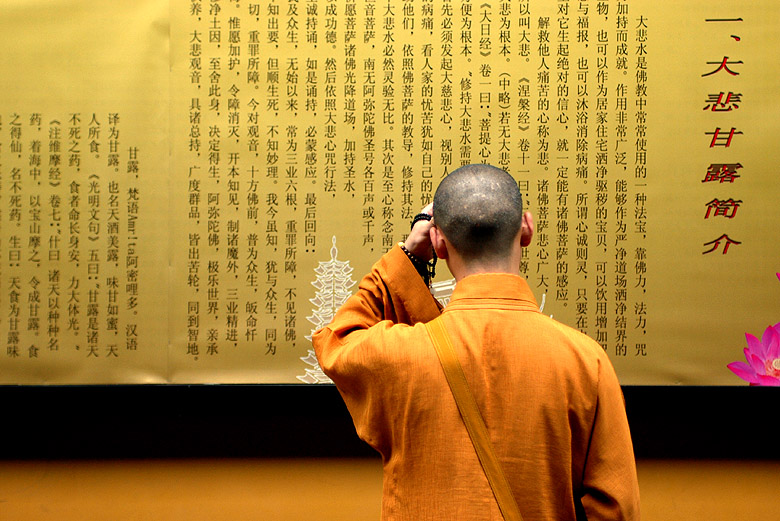 一、大悲甘露简介
大悲水是佛教中常常使用的一种法宝，靠佛力，法力，咒
加持而成就。作用非常广泛，能够作为严净道场洒净结界的
物，也可以作为居家住宅洒净驱秽的宝贝，可以饮用增加
与福报，也可以沐浴消除病痛。所谓心诚则灵，只要在
对它生起绝对的信心，就一定能有诸佛菩萨的感应。
解救他人痛苦的心称为悲。诸佛菩萨悲心广大，
所以叫大悲。《涅槃经》卷十一曰：世尊
悲为根本。（中略）若无大悲者
《大日经》卷一曰：“菩提心
便为根本。”修持大悲水需要
先必须发起大慈悲心，视别人
病痛，看人家的忧苦犹如自己的忧
他们，依照佛菩萨的教导，修持其法，
大悲水必然灵验无比。其次是至心称念南
音菩萨，南无阿弥陀佛圣号各百声或千声，
愿菩萨诸佛光降道场，加持圣水，
成功德。然后依照大悲心咒行法，
至诚持诵，如是诵持，必蒙感应。最后回向：
及众生，无始以来，常为三业六根，重罪所障，不见诸佛，
知出要，但顺生死，不知妙理。我今虽知，犹与众生，同为
切，重罪所障。今对观音，十方佛前，普为众生，皈命忏
惟愿加护，令障消灭，开本知见，制诸魔外，三业精进，
净土因，至舍此身，决定得生，阿弥陀佛，极乐世界，亲承
养，大悲观音，具诸总持，广度群品，皆出苦轮，同到智地。
甘露，梵语Amrita阿密哩多。汉语
译为甘露。也名天酒美露，味甘如蜜，天
人所食。《光明文句》五曰：甘露是诸天
不死之药，食者命长身安，力大体光。
《注维摩经》卷七：什曰 诸天以种种名
药，着海中，以宝山摩之，令成甘露。食
之得仙，名不死药。生曰：天食为甘露味